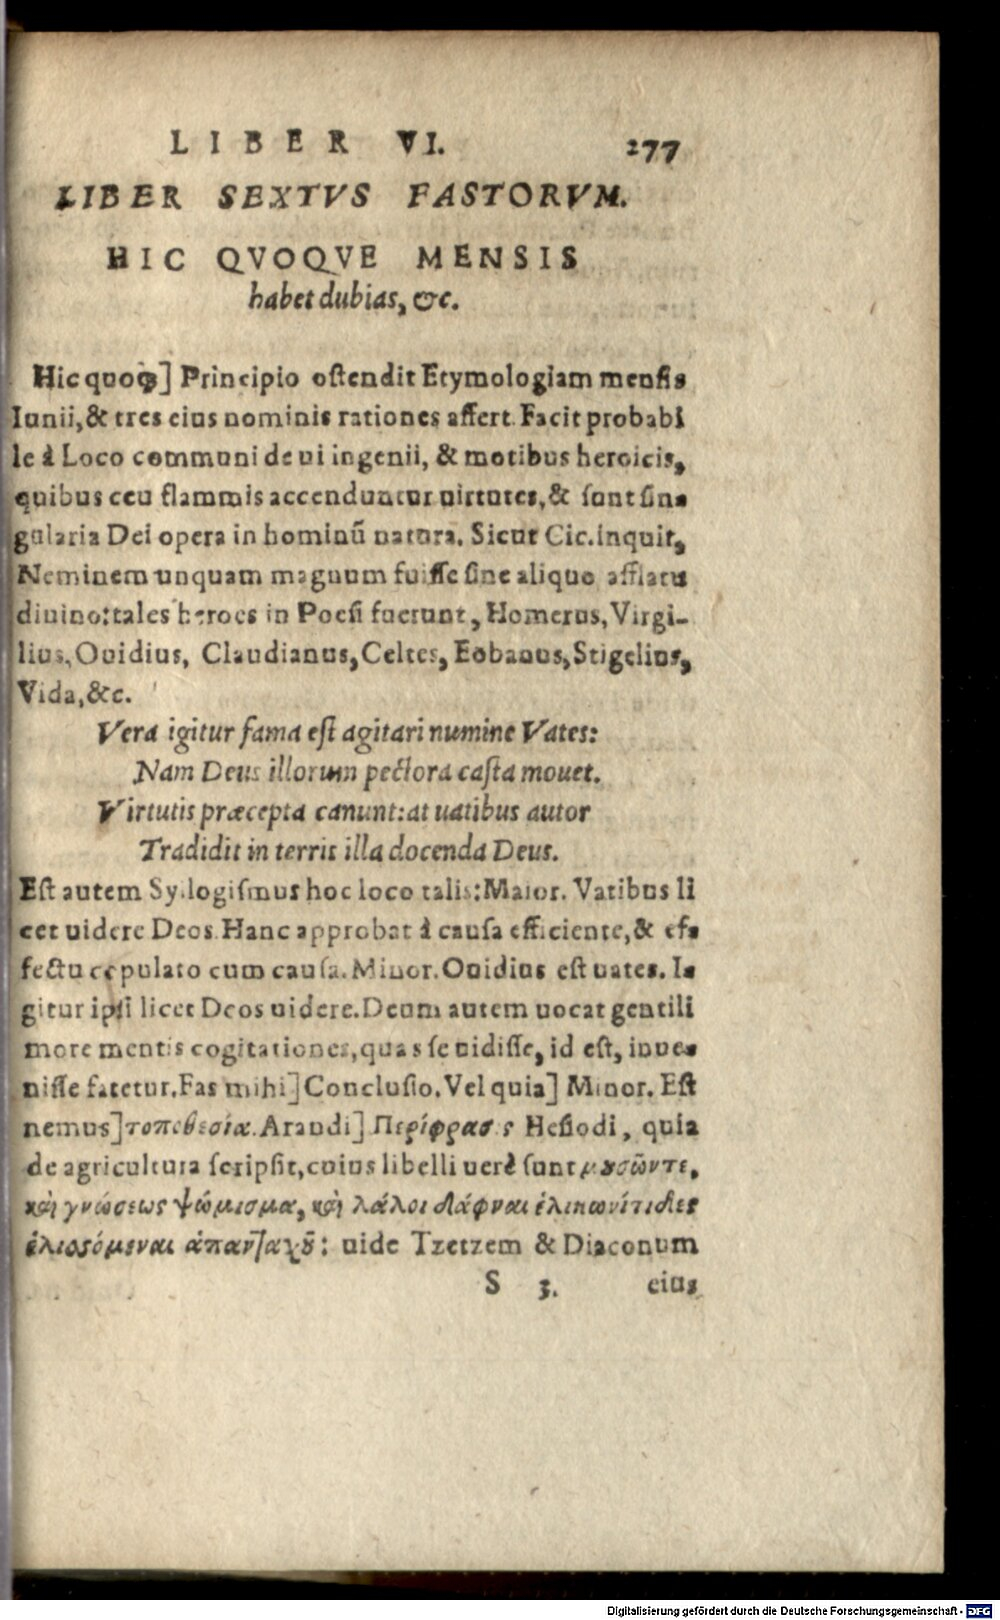 LIBER VI. 277
LIBER SEXTVS FASTORVM.
HIC QVOQVE MENSIS
habet dubias, &c.
Hic quoq;] Principio ostendit Etymologiam mensis
Iunii, & tres eius nominis rationes affert. Facit probabi
le à Loco communi de ui ingenii, & motibus heroicis,
quibus ceu flammis accenduntur uirtutes, & sunt sin-
gularia Dei opera in hominũ natura. Sicut Cic. inquit,
Neminem unquam magnum fuisse sine aliquo afflatu
diuino: tales heroes in Poesi fuerunt, Homerus, Virgi-
lius, Ouidius, Claudianus, Celtes, Eobanus, Stigelius,
Vida, &c.
Vera igitur fama est agitari numine Vates:
Nam Deus illorum pectora casta mouet.
Virtutis præcepta canunt: at uatibus autor
Tradidit in terris illa docenda Deus.
Est autem Syllogismus hoc loco talis: Maior. Vatibus li
cet uidere Deos. Hanc approbat à causa efficiente, & ef-
fectu copulato cum causa. Minor. Ouidius est uates. I-
gitur ipsi licet Deos uidere. Deum autem uocat gentili
more mentis cogitationes, quas se uidisse, id est, inue-
nisse fatetur. Fas mihi] Conclusio. Vel quia] Minor. Est
nemus] τοποθεσία. Arandi] Περίφρασις Hesiodi, quia
de agricultura scripsit, cuius libelli uerè sunt μουσῶν τε,
καὶ γνώσεως ψώμισμα, καὶ λάλοι δάφναι ἑλικωνίτιδες
ἑλισσόμεναι ἁπανταχοῦ: uide Tzetzem & Diaconum
S 3. eius
Digitalisierung gefördert durch die Deutsche Forschungsgemeinschaft - DFG